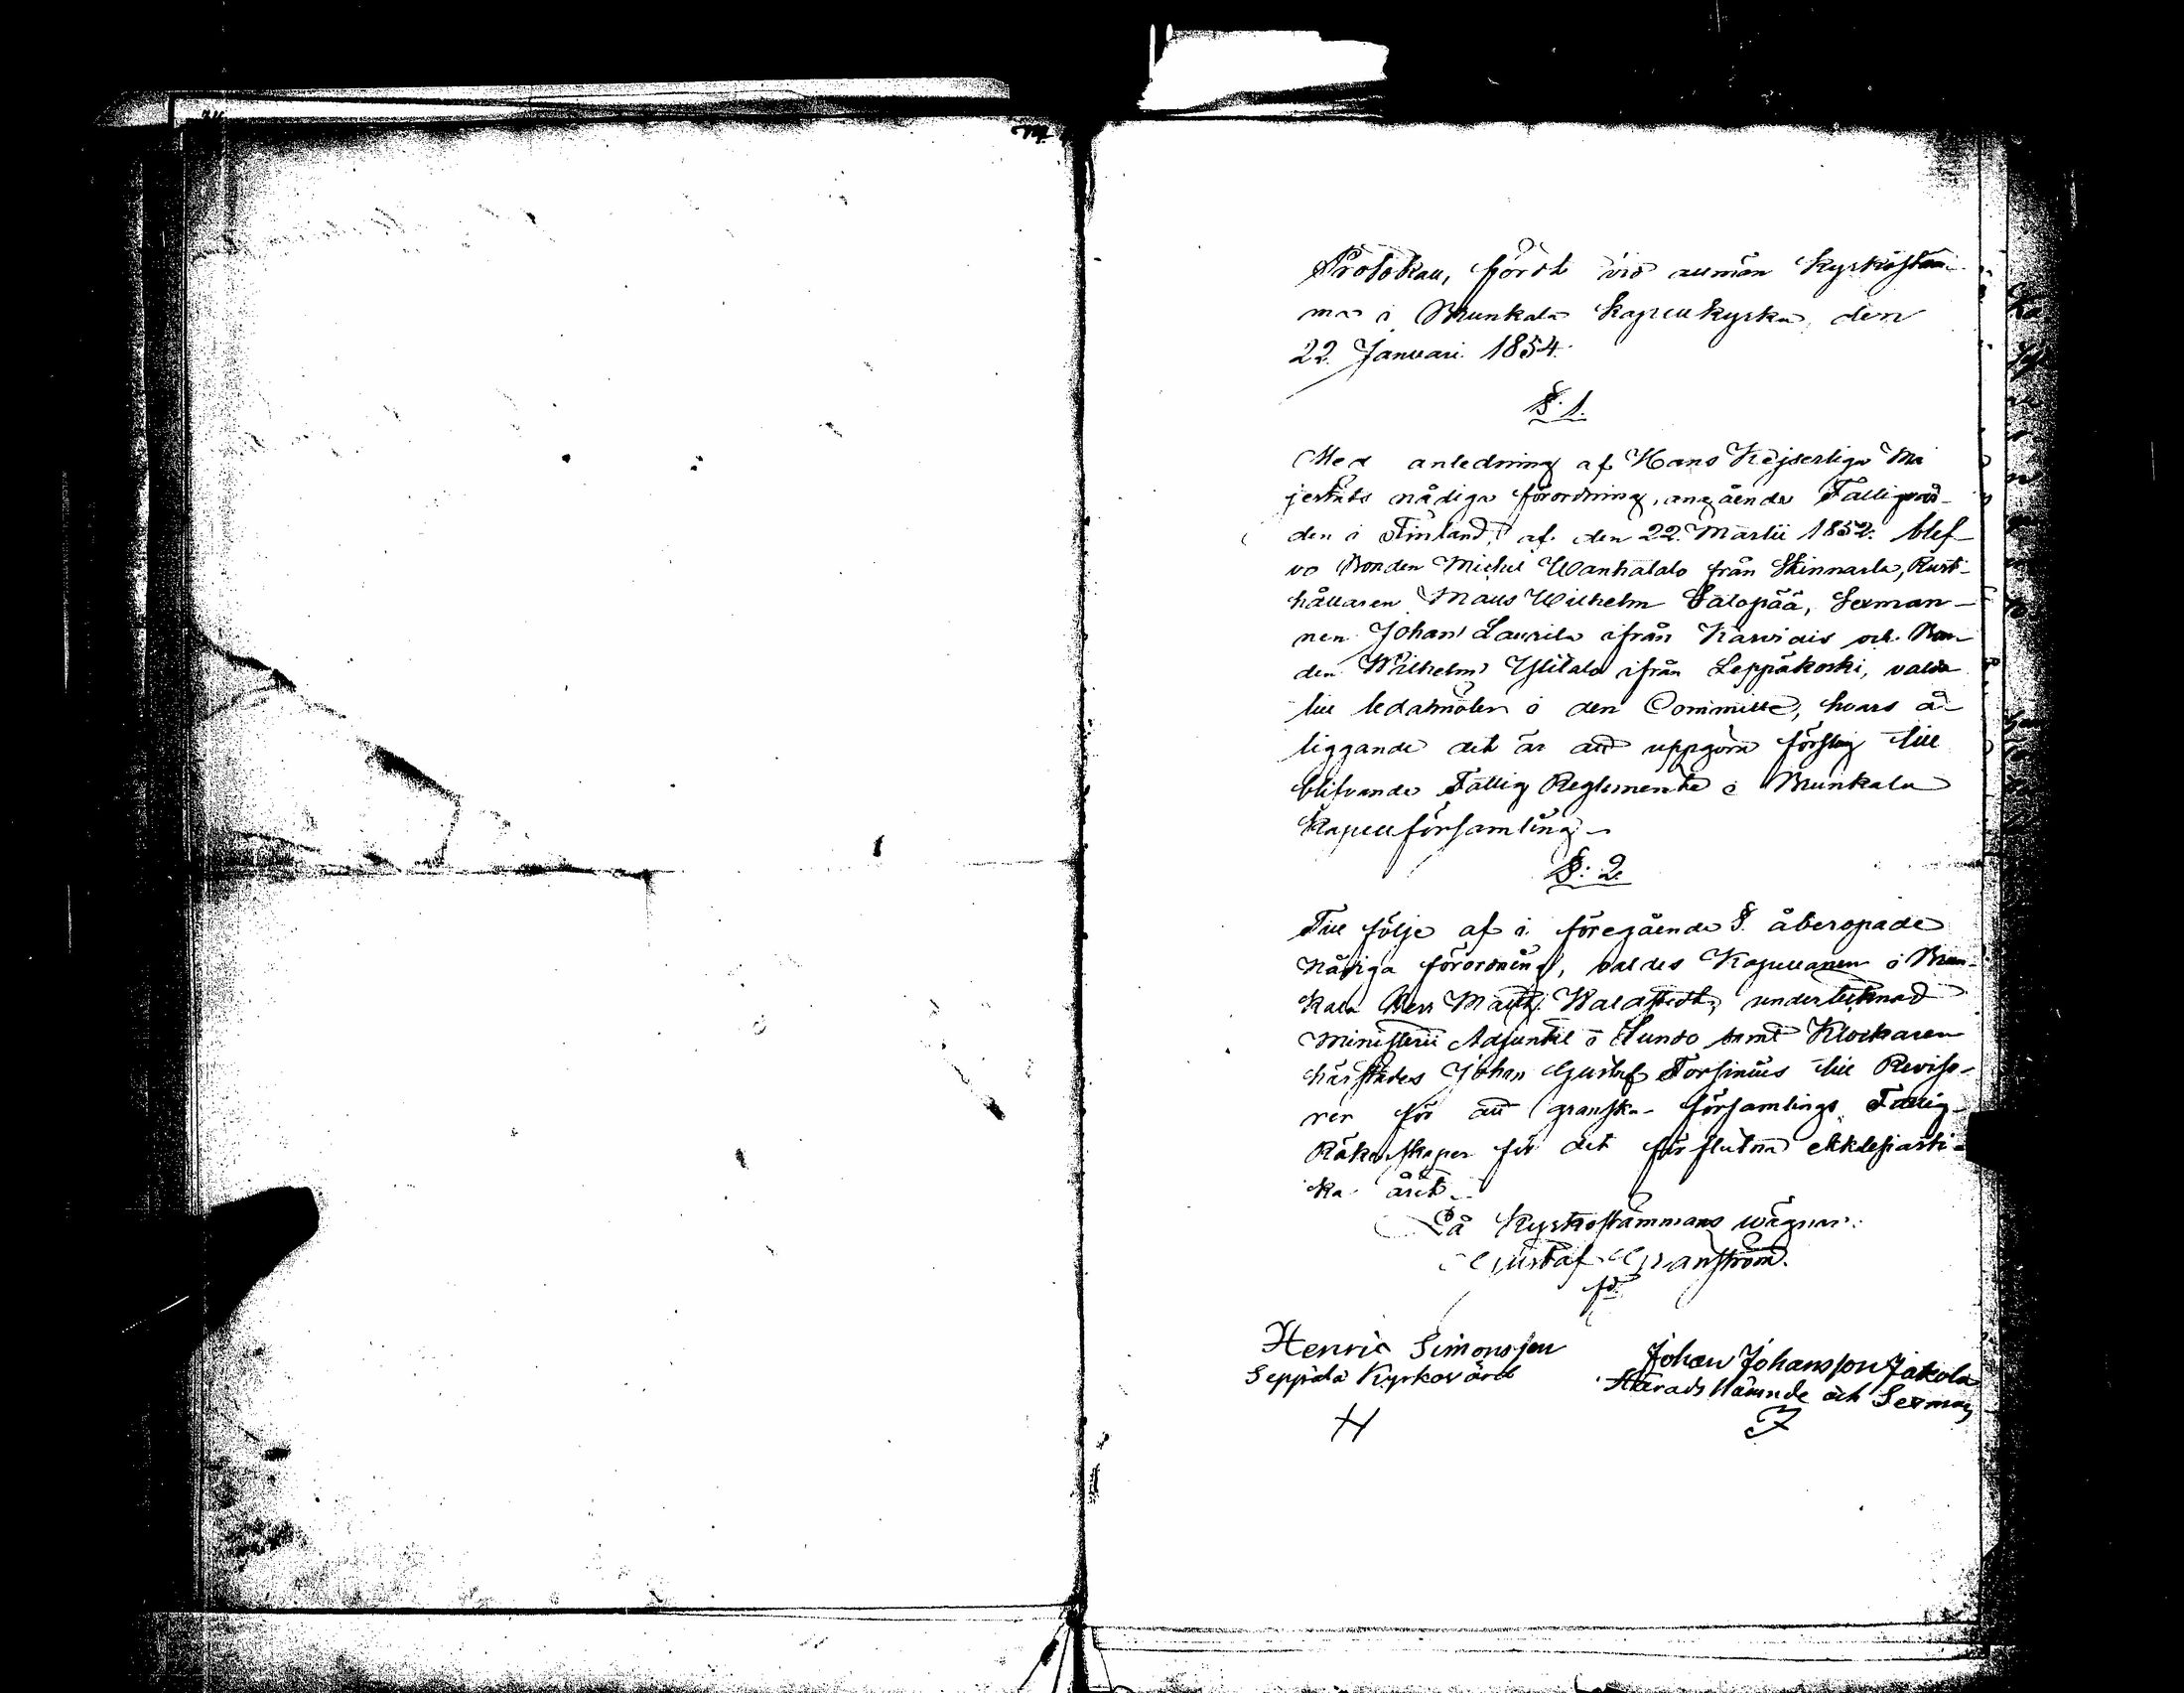 Protokoll, fördt vid allmän Kyrkostäm-
ma i Brunkala Kapellkyrka, den
22. Januari 1854.
§. 1.
Med anledning af Hans Kejserliga Ma
jestäts nådiga förordning, angående Fattigvår-
den i Finland, af den 22. Martii 1852. blef-
vo Bonden Michel Wanhatalo från Skinnarla, Rust-
hållaren Matts Wilhelm Salopää, Sexman-
nen Johan Laurila ifrån Karviais och Bon-
den Wilhelm Ylitalo ifrån Leppäkoski, valda
till ledamöter i den Committé, hvars å-
liggande det är att uppgöra förslag till
blifvande Fattig Reglemente i Brunkala
Kapellförsamling.-
§. 2
Till följe af i föregående §. åberopade
Nådiga förordning, valdes Kapellanen i Brun-
kala Herr Matth. Waldstedt, undertecknad
Ministerii Adjunkt i Lundo samt Klockaren
härstädes Johan Gustaf Forsinius till Reviso-
rer för att granska församlings Fattig-
Räkenskaper för det förflutna ekklesiasti-
ka året.-
På Kyrkostämmans vägnar:
Gustaf Granström.
Henric Simonsson
Seppälä Kyrkovärd
H
Johan Johansson Jakola
Härads Nämnde och Sexman
J